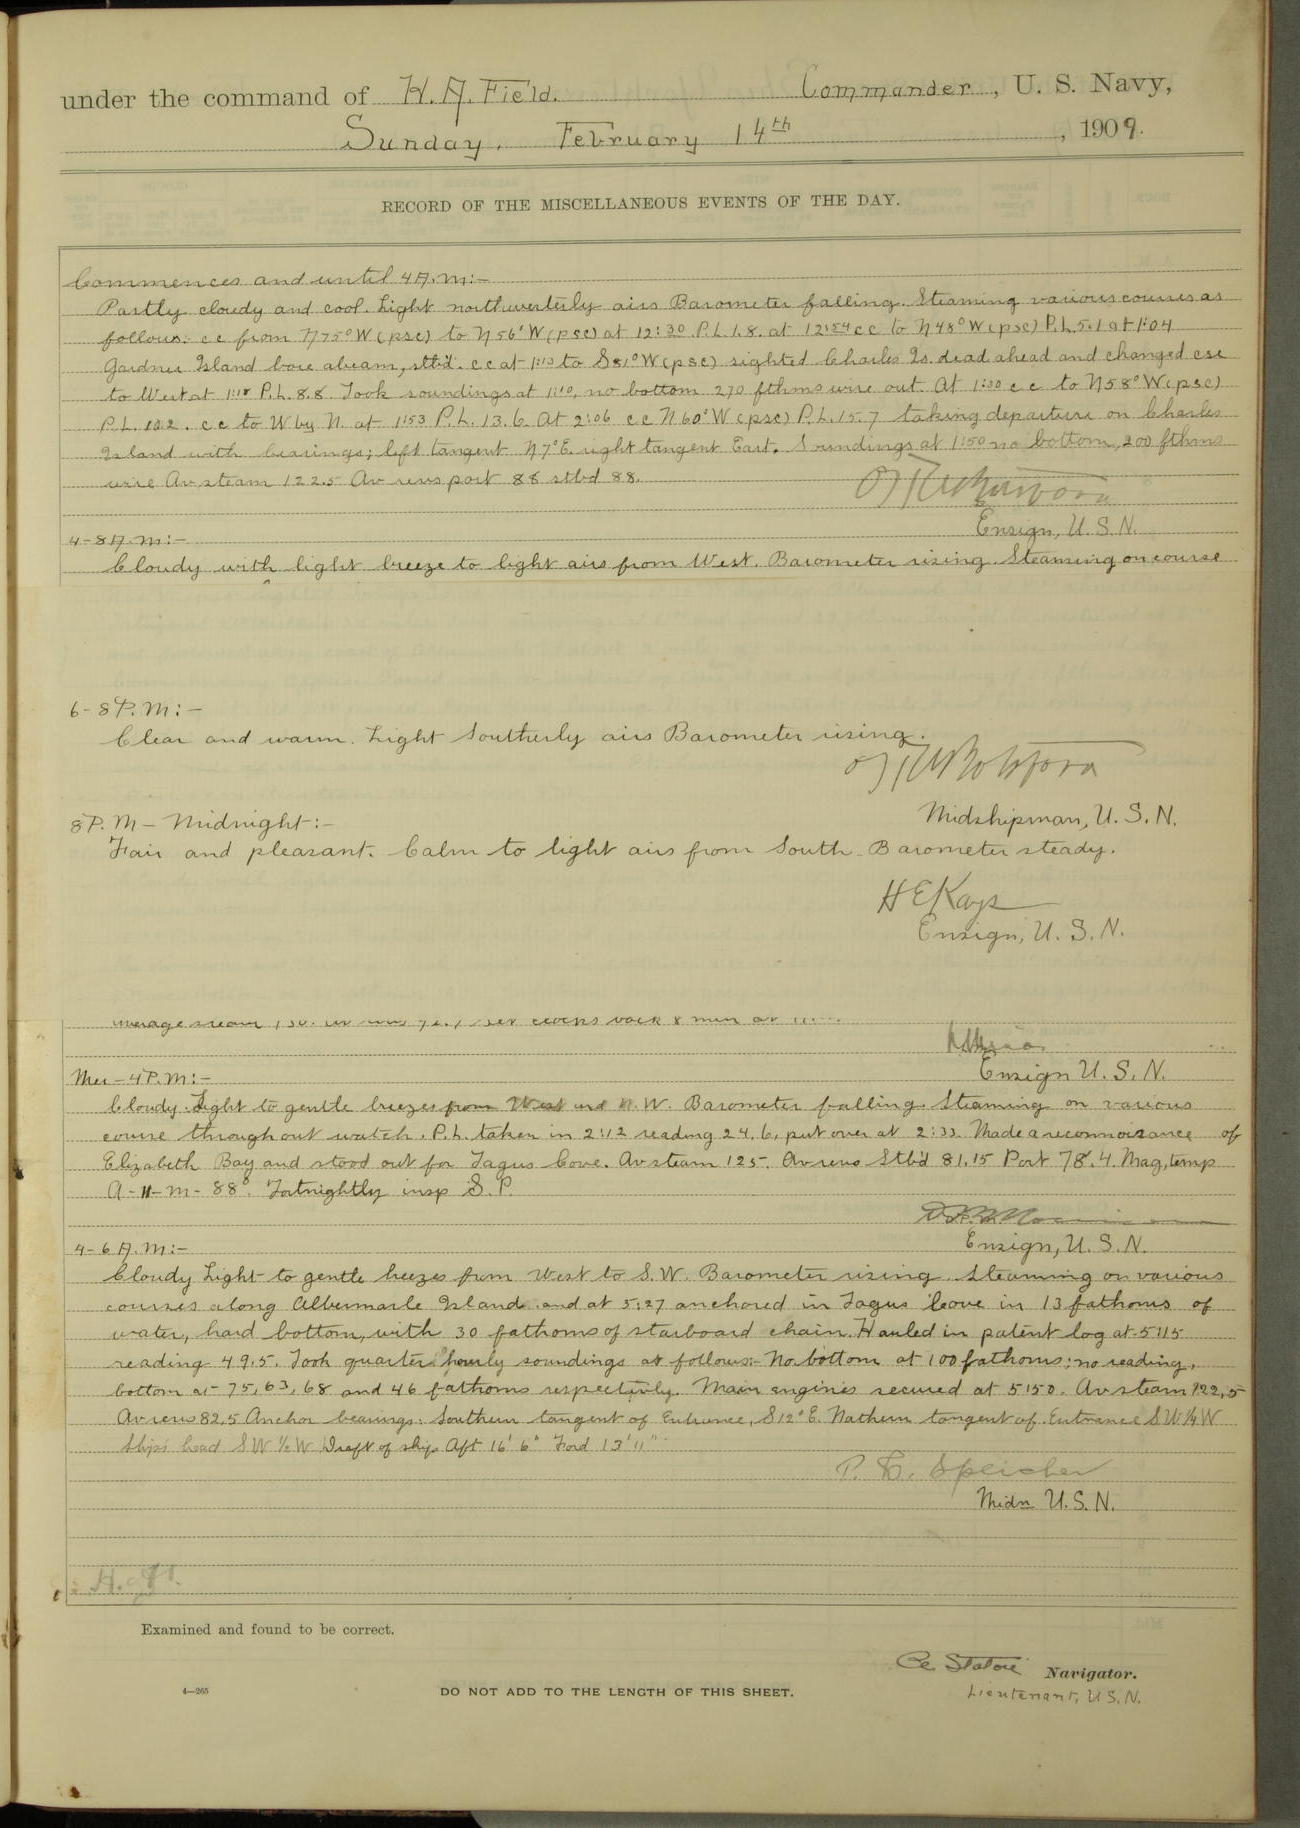 under the command of H. A. Field. Commander, U. S. Navy,
Sunday. February 14th, 1909.
RECORD OF THE MISCELLANEOUS EVENTS OF THE DAY.
Commences and until 4 A.M:-
Partly cloudy and cool. Light northwesterly airs Barometer falling. Steaming various courses as
follows: cc from N75°W (psc) to N56°W (psc) at 12:30 P.L. 1.8. at 12:54 cc to N48°W (psc) P.L. 5.1 at 1:04
Gardner Island bore abeam, stb'd. cc at 1:13 to S81°W (psc) sighted Charles Is. dead ahead and changed cse
to West at 1:18 P.L. 8.8 Took soundings at 1:10, no bottom 270 fthms wire out. At 1:30 c c to N58°W (psc)
P.L. 10.2. cc to W by N. at 1:53 P.L. 13.6. At 2:06 cc N60°W (psc) P.L. 15.7 taking departure on Charles
Island with bearings; left tangent N7°E. right tangent East. Soundings at 1:50 no bottom, 200 fthms
wire Av steam 122.5 Av revs port 88 stbd 88.
Ensign, U.S.N.
4-8 A.M:-
Cloudy with light breeze to light airs from West. Barometer rising. Steaming on course
6-8 P.M:-
Clear and warm. Light Southerly airs Barometer rising.
Midshipman, U.S.N.
8 P.M - Midnight:-
Fair and pleasant. Calm to light airs from South. Barometer steady.
H E Kays
Ensign, U. S. N.
average steam
Ensign U. S. N.
Mer-4 P.M:-
Cloudy. Light to gentle breezes from West and N.W. Barometer falling. Steaming on various
course throughout watch. P.L. taken in 2:12 reading 24.6, put over at 2:33. Made a reconnoisance of
Elizabeth Bay and stood out for Tagus Cove. Av steam 125. Av revs Stb'd 81.15 Port 78.4. Mag, temp
A-11-m- 88°. Fortnightly insp S.P.
Ensign, U.S.N.
4-6 A.M:-
Cloudy Light to gentle breezes from West to S.W. Barometer rising. Steaming on various
courses along Albermarle Island and at 5:27 anchored in Tagus Cove in 13 fathoms of
water, hard bottom, with 30 fathoms of starboard chain. Hauled in patent log at 5:15
reading 49.5. Took quarter hourly soundings as follows:- No bottom at 100 fathoms; no reading,
bottom at 75, 63, 68 and 46 fathoms respectively. Main engines secured at 5:50. Av steam 122.5
Av revs 82.5 Anchor bearings: Southern tangent of Entrance, S12°E. Nothern tangent of Entrance SW¼W
Ships head SW ½ W Draft of ship Aft 16' 6" Ford 13' 11"
P. E. Speicher
Midn U.S.N.
Examined and found to be correct.
Navigator.
Lieutenant, U.S.N.
4—265
DO NOT ADD TO THE LENGTH OF THIS SHEET.